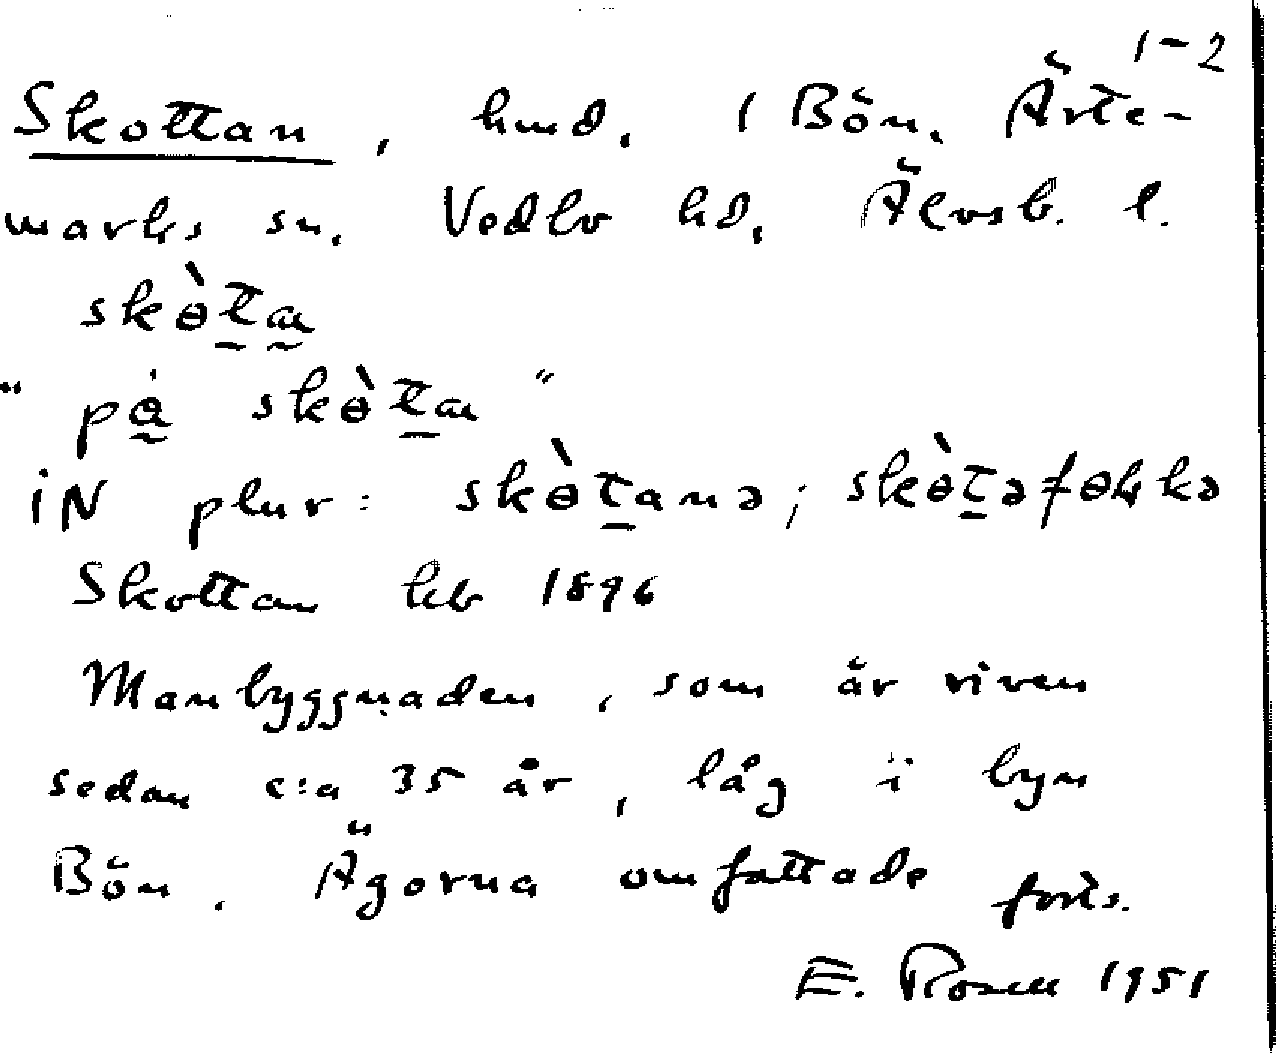 1-2
Skottan, hmd. 1 Bön. Ärte-
marks sn. Vedbo hd. Älvsb. l.
skɵ̀t̲a̰
"på skɵ̀t̲a"
iN plur: skɵ̀t̲anə; skɵ̀t̲əfɵl̥kə
Skottan kb 1896
Manbyggnaden, som är riven
sedan c:a 35 år, låg i byn
Bön. Ägorna omfattade forts.
E. Rosell 1951